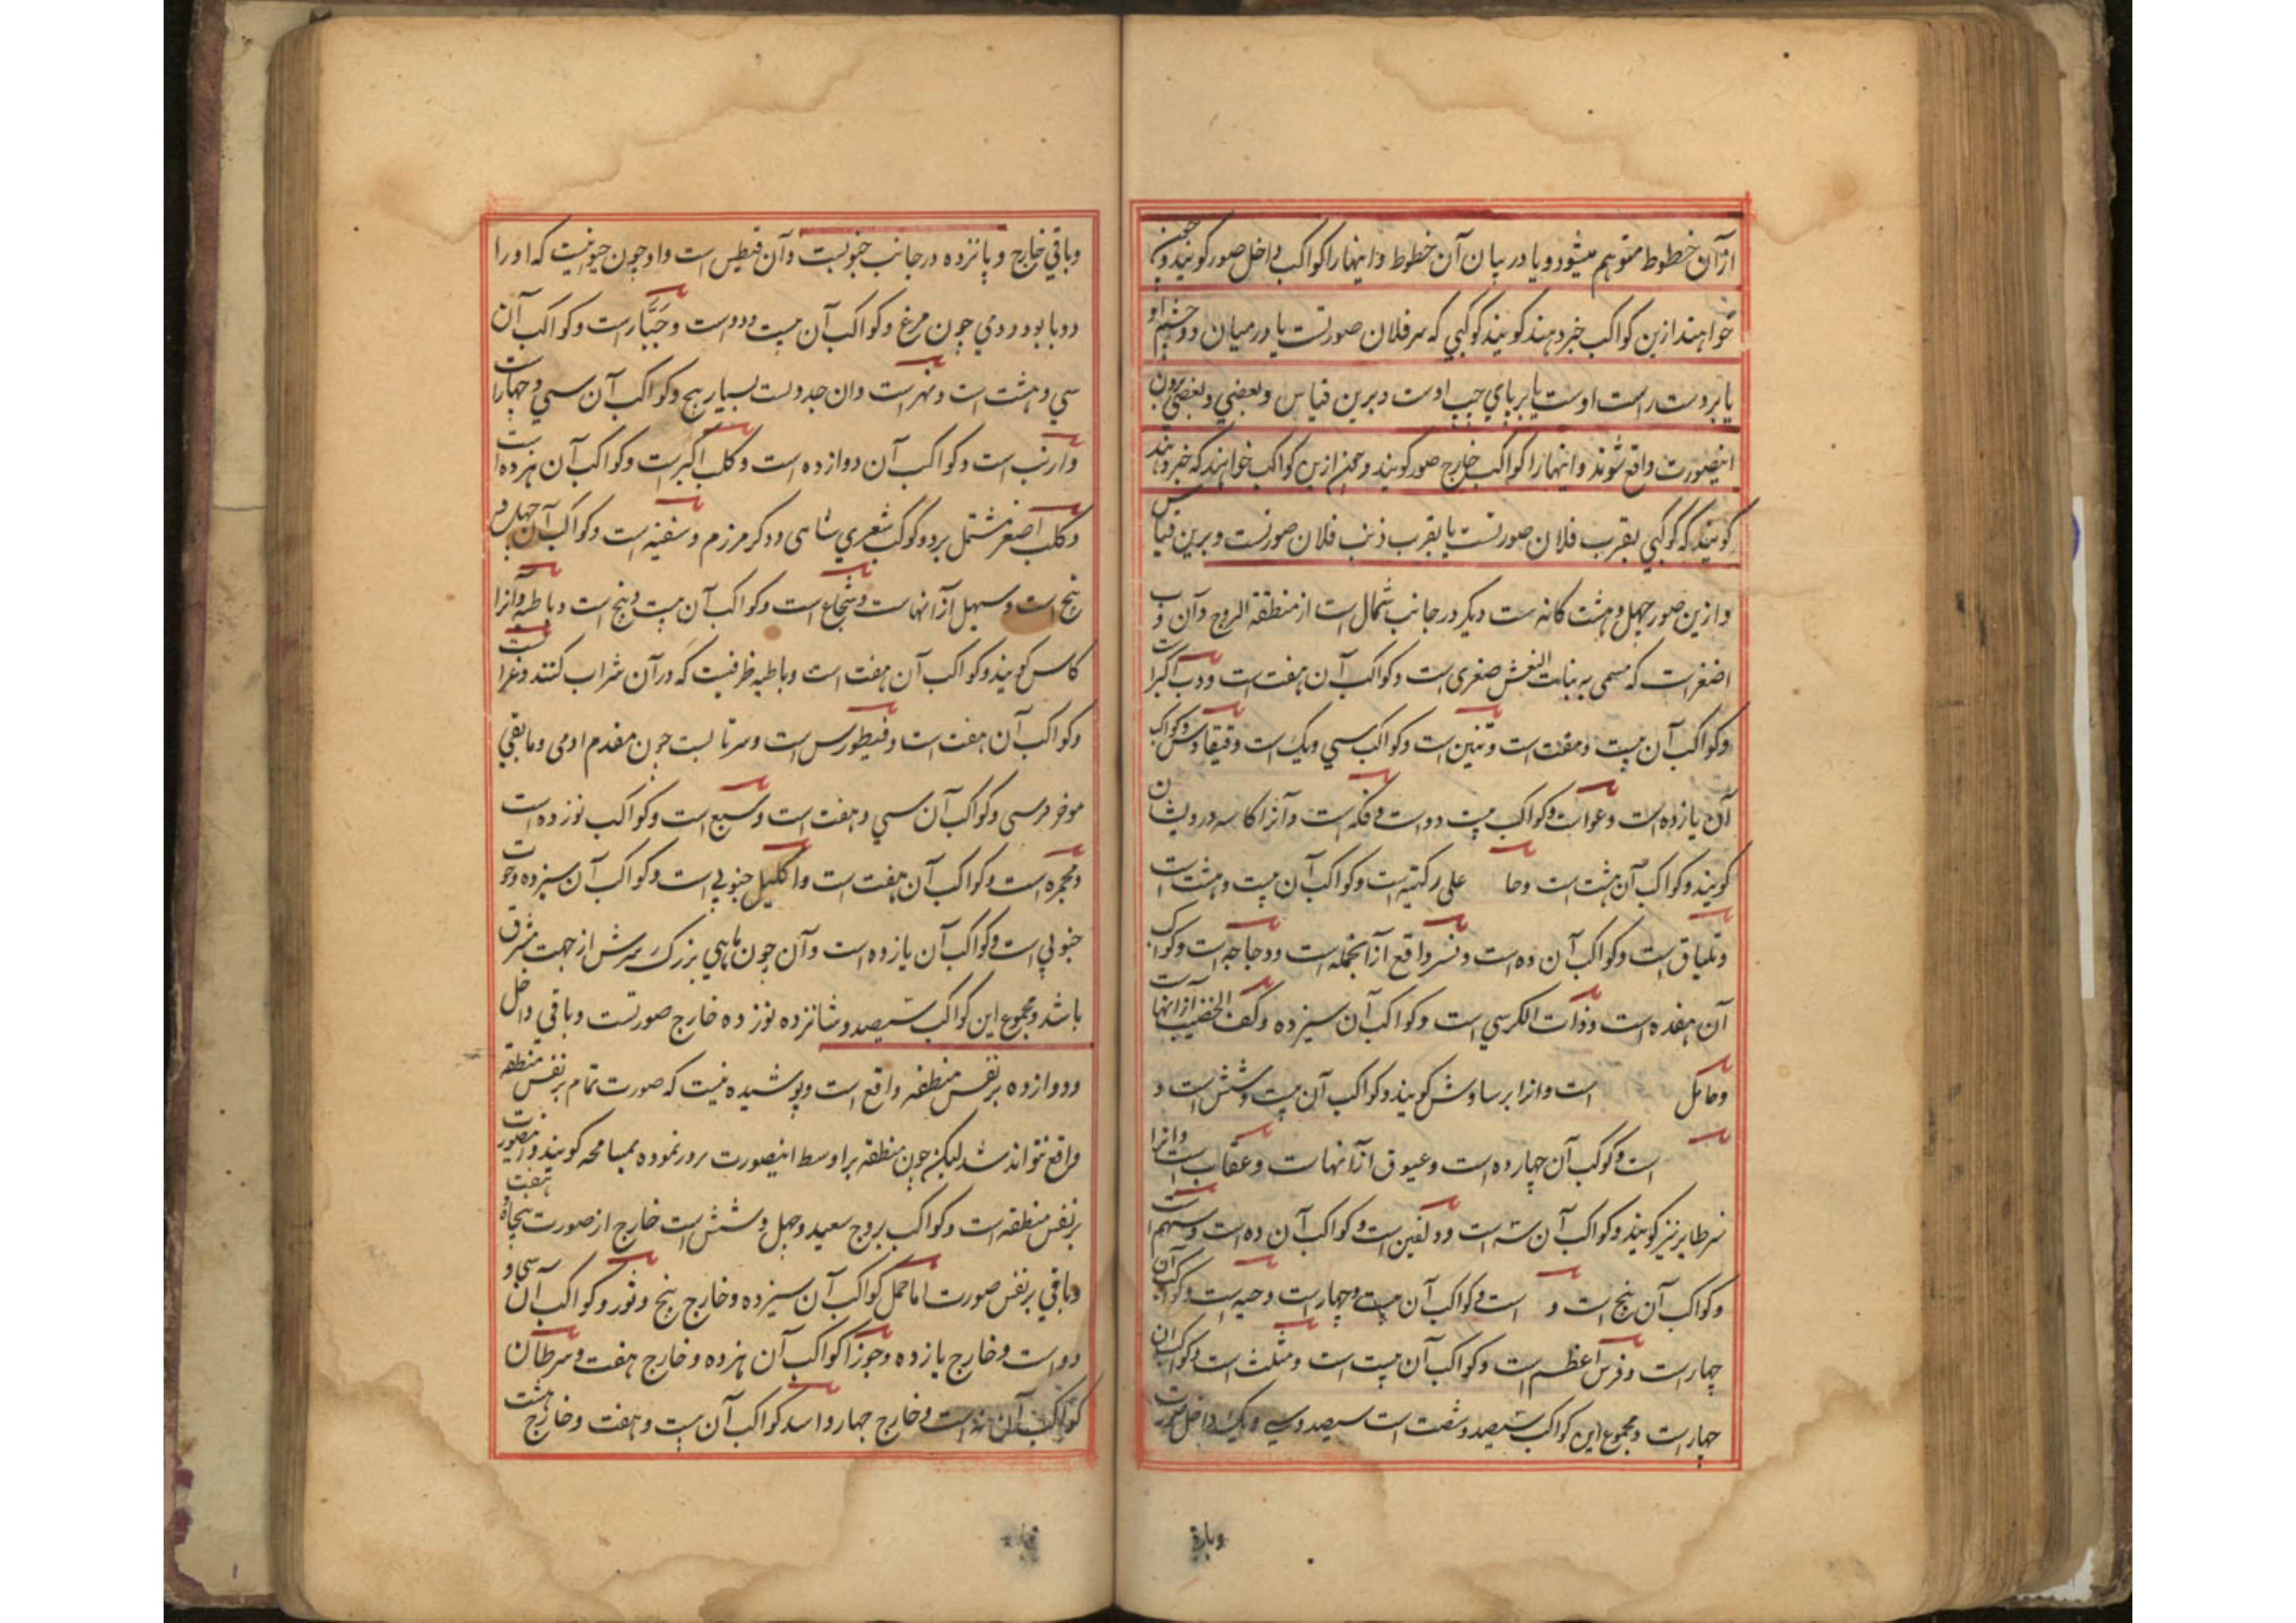 از آن خطوط متوهم میشود و یا در میان آن خطوط و اینها را کواکب داخل صور کویند و چون
خواهند ازین کواکب خبر دهند کویند کوکبی که بر سر فلان صورتست یا در میان دو چشم او
یا بر دست راست اوست یا بر پای چپ اوست و برین قیاس و بعضی و بعضی برون
اینصورت واقع شوند و اینها را کواکب خارج صور کویند و چون ازین کواکب خواهند که خبر دهند
کویند که کوکبی بقرب فلان صورتست یا بقرب ذنب فلان صورتست و برین قیاس
و ازین صور چهل و هشت کانه ست دیکر در جانب شمال است از منطقة البروج و آن دب
اصغر است که مسمی به بنات النعش صغری است و کواکب آن هفت است و دب اکبر است
و کواکب آن بیست و هفت است و تنین است و کواکب سی و یک است و قیقاوس و کواکب
آن یازده است و عوا است و کواکب بیست و دو است و فکه است و آنرا کاسه درویشان
کویند و کواکب آن هشت است و جا علی رکتیه است و کواکب آن بیست و هشت است
و شلیاق است و کواکب آن ده است و نسر واقع از آنجمله است و دجاجه است و کواکب
آن هفده است و ذات الکرسی است و کواکب آن سیزده و کف الخضیب از آنهاست
و حامل است و انرا برساوش کویند و کواکب آن بیست و شش است و
است و کوکب آن چهارده است و عیوق از آنهاست و عقاب است و انرا
نسر طایر نیز کویند و کواکب آن نه است و دلفین است و کواکب آن ده است و سهم است
و کواکب آن پنج است و است و کواکب آن بیست و چهار است و حیه است و کواکب آن
چهار است و فرس اعظم است و کواکب آن بیست است و مثلث است و کواکب ان
چهار است و مجموع این کواکب سیصد و شصت است سیصد و سی و یک داخل صورت
وباقی
وباقی خارج و پانزده در جانب جنوبست و آن قیطس است و او چون حیوانیست که او را
دو پا بود و دمی چون مرغ و کواکب آن بیست و دو است و جبّار است و کواکب آن
سی و هشت است و نهر است و ان جدولست بسیار پیچ و کواکب آن سی و چهار است
و ارنب است و کواکب آن دوازده است و کلب اکبر است و کواکب آن هژده است
و کلب اصغر مشتمل بر دو کوکب شعری شامی و دکر مرزم و سفینه است و کواکب آن چهل و
پنج است و سهیل از آنهاست و شجاع است و کواکب آن بیست و پنج است و باطیه و آنرا
کاس کویند و کواکب آن هفت است و باطیه ظرفیست که در آن شراب کنند و غراب است
و کواکب آن هفت است و قیطورس است و سرتا لبست چون مقدم ادمی و مابقی
موخر فرسی و کواکب آن سی و هفت است و سبع است و کواکب نوزده است
و مجمره است و کواکب آن هفت است و اکلیل جنوبی است و کواکب آن سیزده و حوت
جنوبی است و کواکب آن یازده است و آن چون ماهی بزرک سرش از جهت مشرق
باشد و مجموع این کواکب سیصد و شانزده نوزده خارج صورتست و باقی داخل
و دوازده بر نفس منطقه واقع است و پوشیده نیست که صورت تمام بر نفس منطقه
واقع نتواند شد لیکن چون منطقه بر اوسط اینصورت مرور نموده بمسامحه کویند و اینصورت
بر نفس منطقه است و کواکب بروج سیصد و چهل و شش است خارج از صورت پنجاه و هفت
و باقی بر نفس صورت اما حمل کواکب آن سیزده و خارج پنج و ثور و کواکب آن سی و
دو است و خارج یازده و جوزا کواکب آن هژده و خارج هفت و سرطان
کواکب آن نه است و خارج چهار و اسد کواکب آن بیست و هفت و خارج هشت